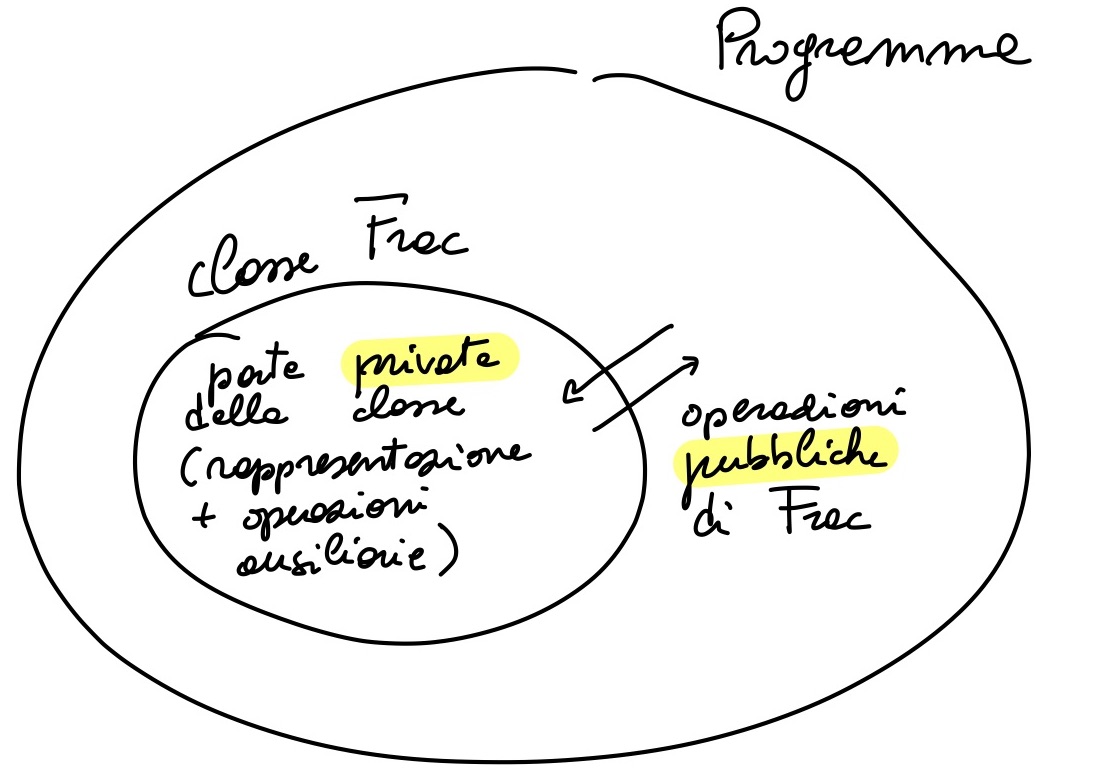 Programma
classe Frac
parte privata
della classe
(rappresentazione
+ operazioni
ausiliarie)
operazioni
pubbliche
di Frac